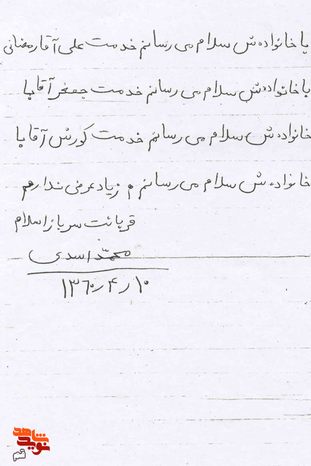 با خانواده ش سلام می رسانم خدمت علی آقا رمضانی
با خانواده ش سلام می رسانم خدمت جعفر آقا با
خانواده ش سلام می رسانم خدمت کورش آقا با
خانواده ش سلام می رسانم م زیاد عرضی ندارم
قربانت سرباز اسلام
محمد اسدی
۱۳۶۰٫۴٫۱۰
نوید شاهد
قم